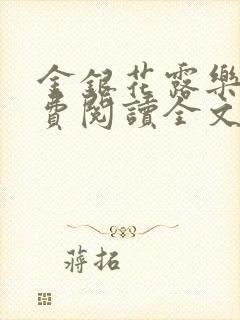 金銀花露樂
費閱讀全文
蔣拓